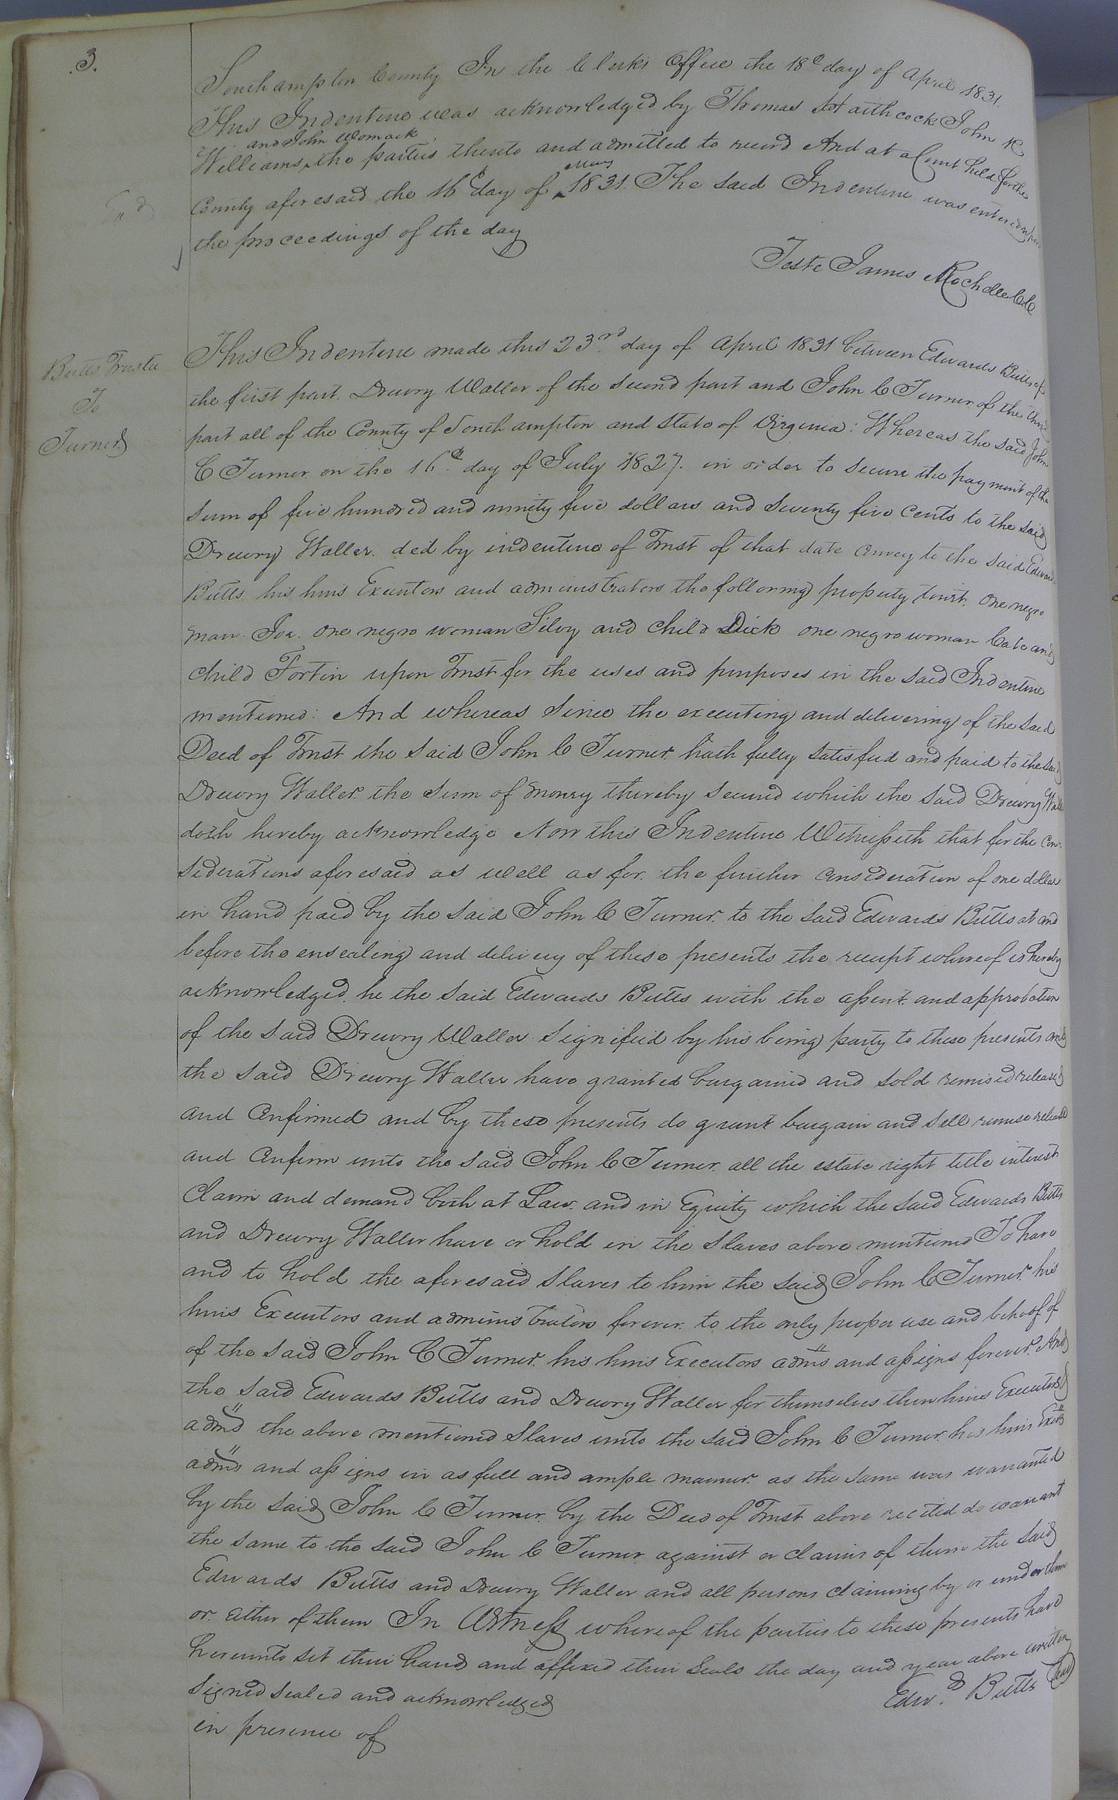 3.
Southampton County In the Clerks Office the 18th day of April 1831.
This Indenture was acknowledged by Thomas Hathcock John R
and John Womack
Williams, the parties thereto and admitted to record And at a Court held for the
May
County aforesaid the 16th day of 1831. The said Indenture was entered upon
the proceedings of the day
Teste James Rochelle CC
Exd
Butts Trustee
To
Turner
This Indenture made this 23rd day of April 1831 between Edwards Butts of
the first part. Drewry Waller of the second part and John C Turner of the third
part all of the County of Southampton and State of Virginia: Whereas the said John
C Turner on the 16th day of July 1827. in order to secure the payment of the
sum of five hundred and ninety five dollars and seventy five cents to the said
Drewry Waller. did by indenture of Trust of that date convey to the said Edwards
Butts his heirs Executors and administrators the following property towit. One negro
man Joe. one negro woman Silvy and child Dick one negro woman Cate and
child Fortin upon Trust for the uses and purposes in the said Indenture
mentioned: And whereas since the executing and delivering of the said
Deed of Trust the said John C Turner hath fully satisfied and paid to the said
Drewry Waller the sum of money thereby secured which the said Drewry Waller
doth hereby acknowledge Now this Indenture Witnesseth that for the con-
siderations aforesaid as well as for the further consideration of one dollar
in hand paid by the said John C Turner to the said Edwards Butts at and
before the ensealing and delivery of these presents the receipt whereof is hereby
acknowledged he the said Edwards Butts with the assent and approbation
of the said Drewry Waller signified by his being party to these presents and
the said Drewry Waller have granted bargained and sold remised released
and confirmed and by these presents do grant bargain and sell remise release
and confirm unto the said John C Turner all the estate right title interest
Claim and demand both at Law and in Equity which the said Edwards Butts
and Drewry Waller have or hold in the slaves above mentioned To have
and to hold the aforesaid slaves to him the said John C Turner his
heirs Executors and administrators forever to the only proper use and behoof of
of the said John C Turner his heirs Executors adms and assigns forever. And
the said Edwards Butts and Drewry Waller for themselves their heirs Executors
admd the above mentioned slaves unto the said John C Turner his heirs Exors
adms and assigns in as full and ample manner as the same was warranted
by the said John C Turner by the Deed of Trust above recited do warrant
the same to the said John C Turner against or claims of them the said
Edwards Butts and Drewry Waller and all persons claiming by or under them
or either of them In Witness whereof the parties to these presents have
hereunto set their hand and affixed their seals the day and year above written
Signed sealed and acknowledged
in presence of
Edwd Butts Seal